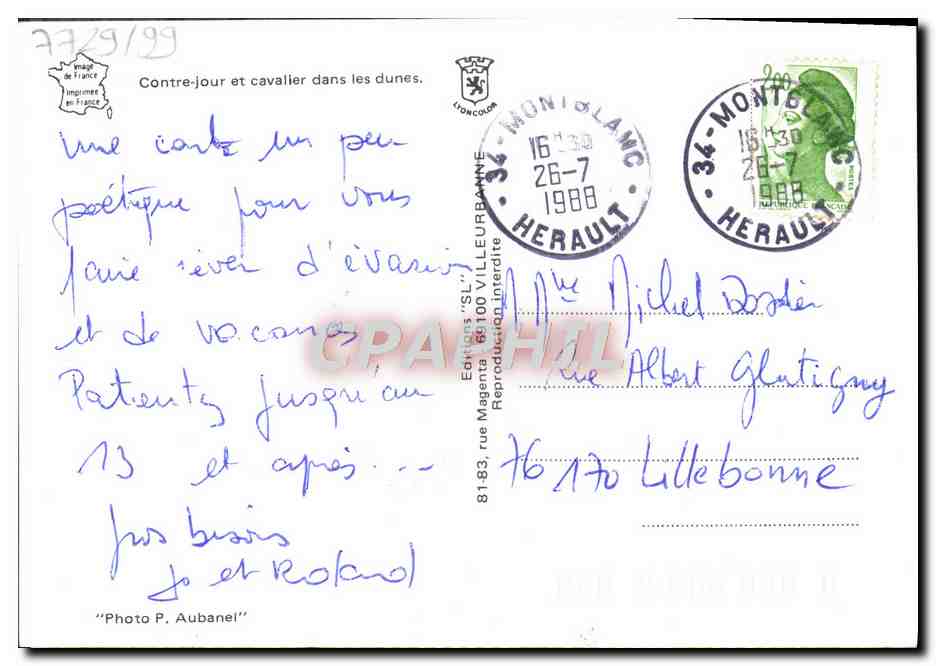 7729/99
Image
de France
Imprimée
en France
Contre-jour et cavalier dans les dunes.
LYONCOLOR
une carte un peu
poétique pour vous
faire rêver d'évasion
et de vacances
Patientez jusqu'au
13 et après...
gros bisous
Jo et Roland
"Photo P. Aubanel"
Editions "SL"
81-83, rue Magenta 69100 VILLEURBANNE
Reproduction interdite
34-MONTBLANC
16H30
26-7
1988
HERAULT
34-MONTBLANC
16H30
26-7
1988
HERAULT
2,00
POSTES
REPUBLIQUE FRANCAISE
M. Mme Michel
Rue Albert Glatigny
76170 Lillebonne
CPAPHIL